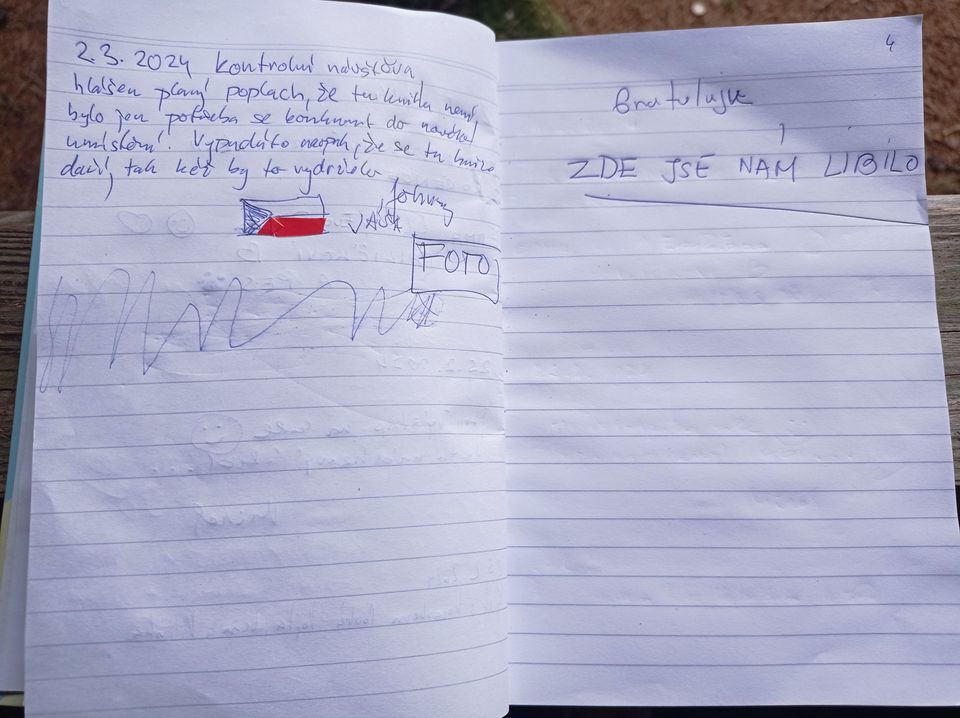 2.3. 2024 kontrolní návštěva
hlášen planý poplach, že tu kniha není,
bylo jen potřeba se kouknout do
umístění. Vypadá to naopak, že se tu knize
daří, tak kéž by to vydrželo
Johny
VAŠA
FOTO
4
Gratuluju
ZDE JSE NAM LIBILO